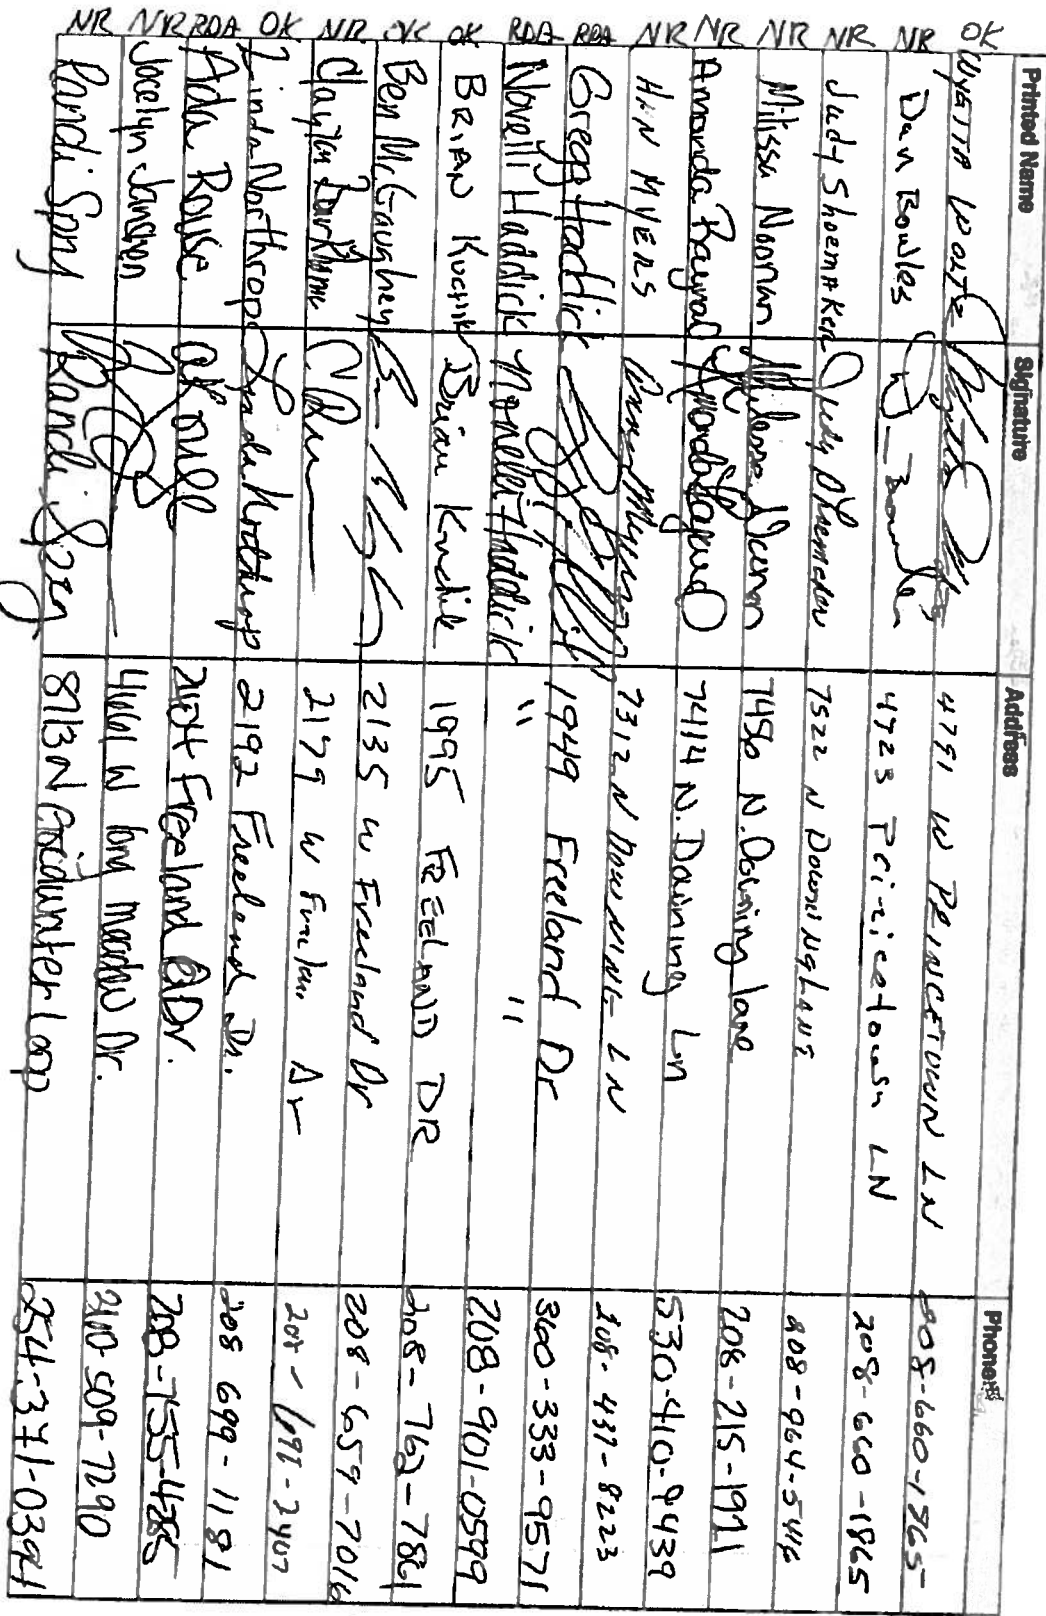 Printed Name Signature Address Phone#
OK 4791 W PRINCETOWN LN 208-660-1865
NR Dan Bowles 4723 Princetown LN 208-660-1865
NR Judy Shoemaker Judy Shoemaker 7522 N Downing Lane 208-964-5446
NR Melissa Noonan Melissa Noonan 7456 N. Downing lane 208-215-1971
NR Amanda Raynal Amanda Raynal 7414 N. Downing Ln 530-410-9439
NR MYERS 7312 N Downing LN 208-437-8223
RDA Gregg Haddick 1949 Freeland Dr 360-333-9571
RDA Novelli Haddick Novelli Haddick " " 208-901-0599
OK BRIAN Kuchik Brian Kuchik 1995 FREELAND DR 208-762-7861
OK Ben McGaughey 2135 W Freeland Dr 208-659-7016
NR Clayton 2179 W Dr 208-691-3407
OK Linda Northrop Linda Northrop 2192 Freeland Dr. 208 699-1181
RDA Ada Rouse A Rouse Freeland Dr. 208-755-4285
NR Jocelyn Janchen 4661 W long meadow Dr. 509-7290
NR Randi Spey Randi Spey 8713 N Goldwater Loop 254-371-0394